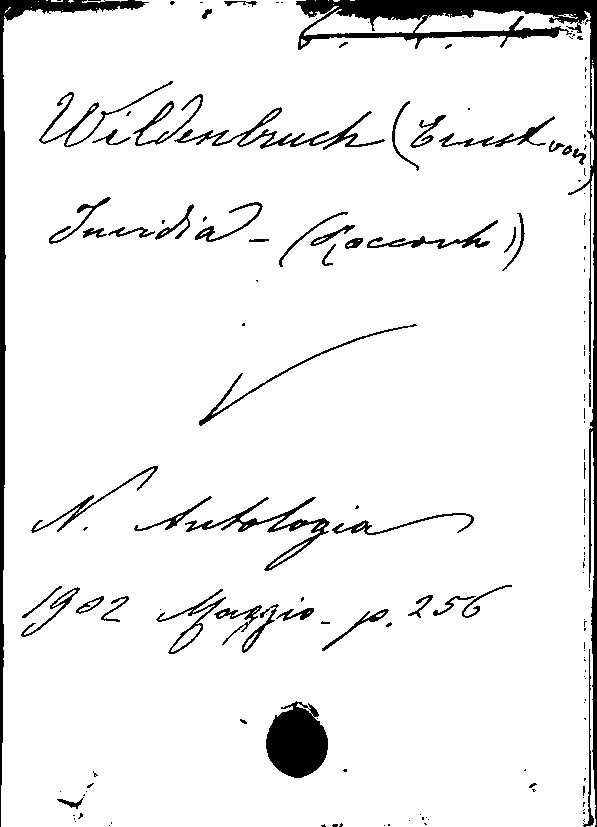 Wildenbruch (Ernst von)
Invidia - (Racconto))
N. Antologia
1902 Maggio - p. 256